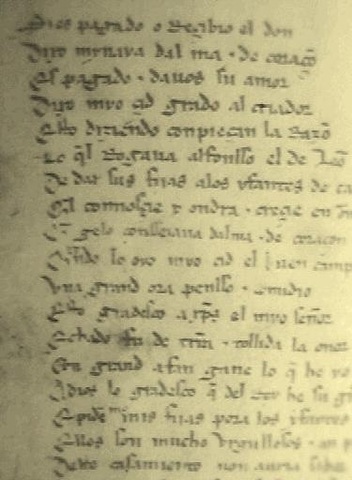 Si es pagado o Recibio el don
Dixo minaya dal ma · de coraçõ
Es pagado · dauos su amor
Dixo myo çid grado al criador
Esto diziendo conpieçan la Razõ
Lo q̃l Rogaua alfonsso el de Leõ
De dar sus fijas alos yfantes de ca
Q̃l connosçie y ondra · creçie en on
Q̃ gelo conseiaua dalma · de coraçon
Q̃ndo lo oyo myo çid el buen camp
Vna grand ora pensso · comidio
Esto gradesco a xp̃s el myo señor
Echado fu de trr̃a · tollida la onor
Con grand afan gane lo q̃ he yo
A dios lo gradesco q̃ del Rey he su gr
E piden mis fijas pora los yfantes
Ellos son mucho vrgullosos · an p
Deste casamiento non auria sabor